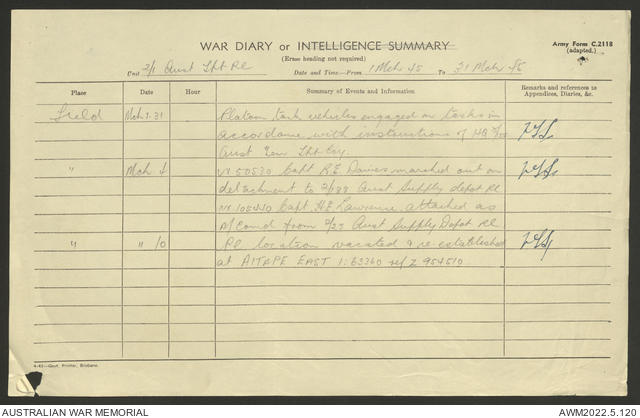 WAR DIARY or INTELLIGENCE SUMMARY
Army Form C.2118
(adapted.)
(Erase heading not required)
Unit 2/1 Aust Tpt Pl
Date and Time—From 1 Mch 45 To 31 Mch 45
Place Date Hour Summary of Events and Information Remarks and references to Appendices, Diaries, &c.
Field Mch 1-31 Platoon task vehicles engaged on tasks in
accordance with instructions of HQ
Aust Gen Tpt Coy.
" Mch 4 50530 Capt R.E. Davies marched out on
detachment to 2/188 Aust Supply depot Pl
105410 Capt. H.E. Lawrence attached as
from 2/23 Aust Supply Depot Pl
" " 10 Pl location vacated & re-established
at AITAPE EAST 1:63360 ref Z 954510
4-43—Govt. Printer, Brisbane.
AUSTRALIAN WAR MEMORIAL
AWM2022.5.120